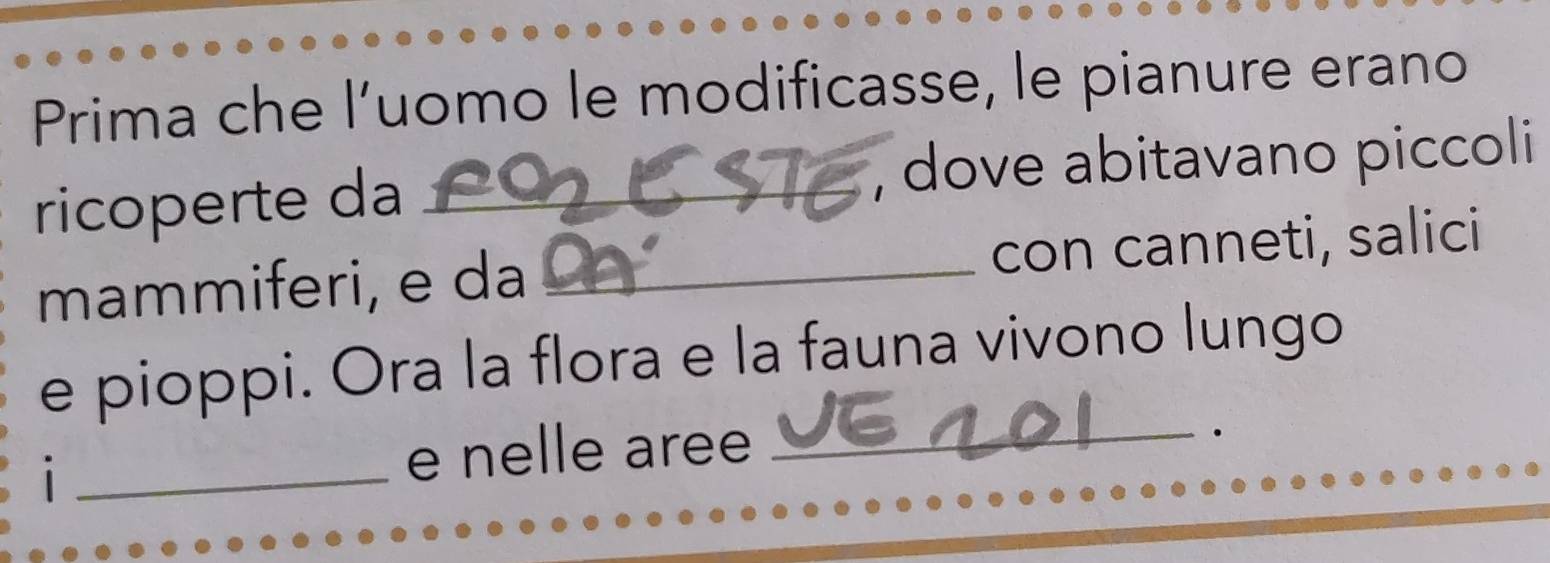 Prima che l'uomo le modificasse, le pianure erano
ricoperte da FORESTE, dove abitavano piccoli
mammiferi, e da ___ con canneti, salici
e pioppi. Ora la flora e la fauna vivono lungo
i ___ e nelle aree ___.